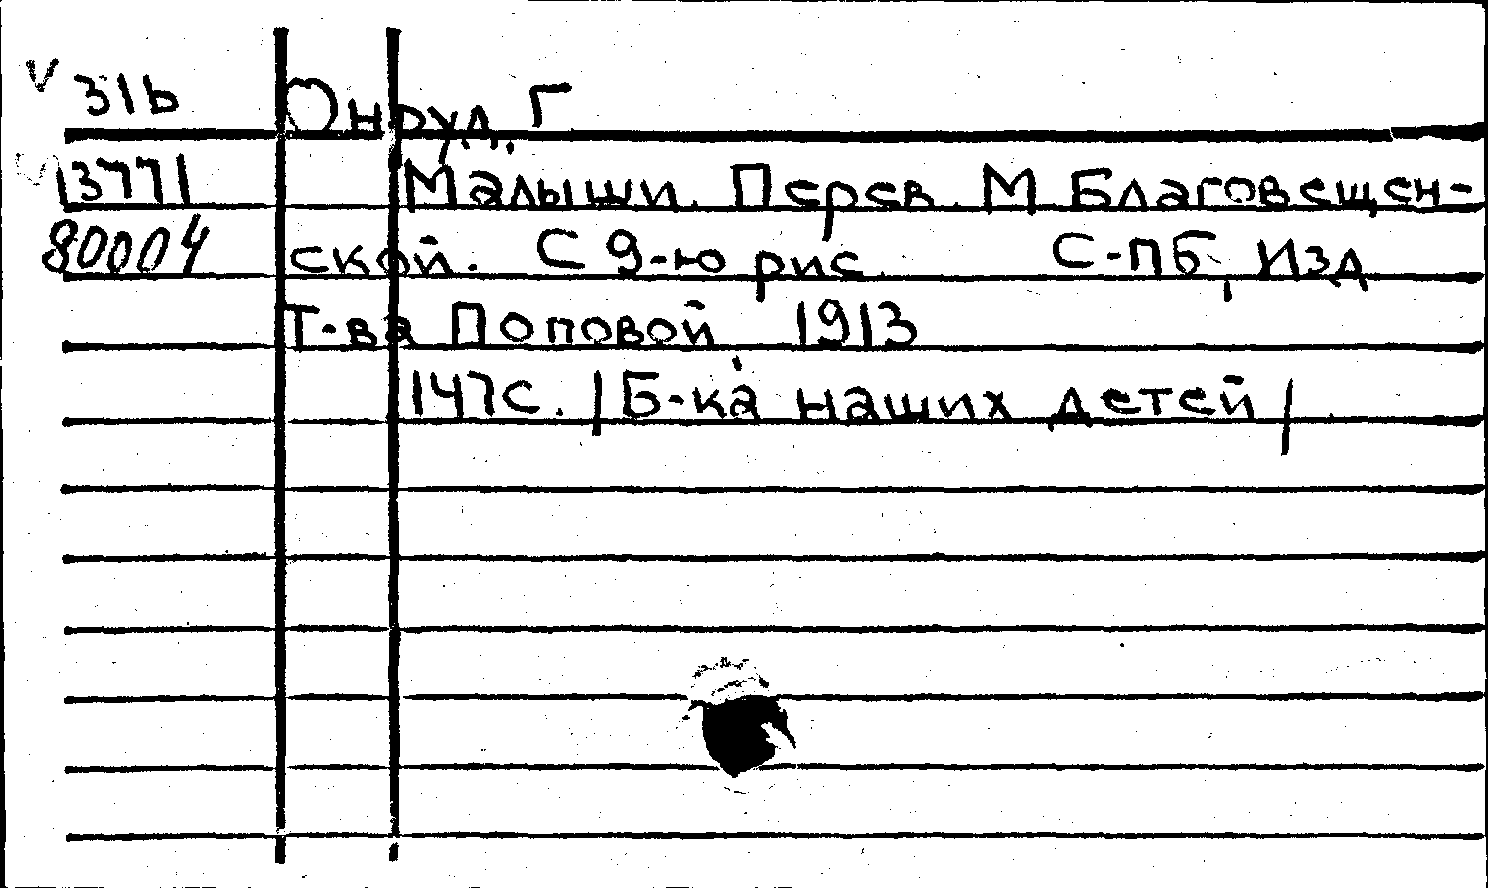 V 31b Онруд, Г
V 13771 Малыши. Перев. М Благовещен-
80004 ской. С 9-ю рис. С-ПБ, Изд
Т-ва Поповой, 1913
147с. /Б-ка наших детей/